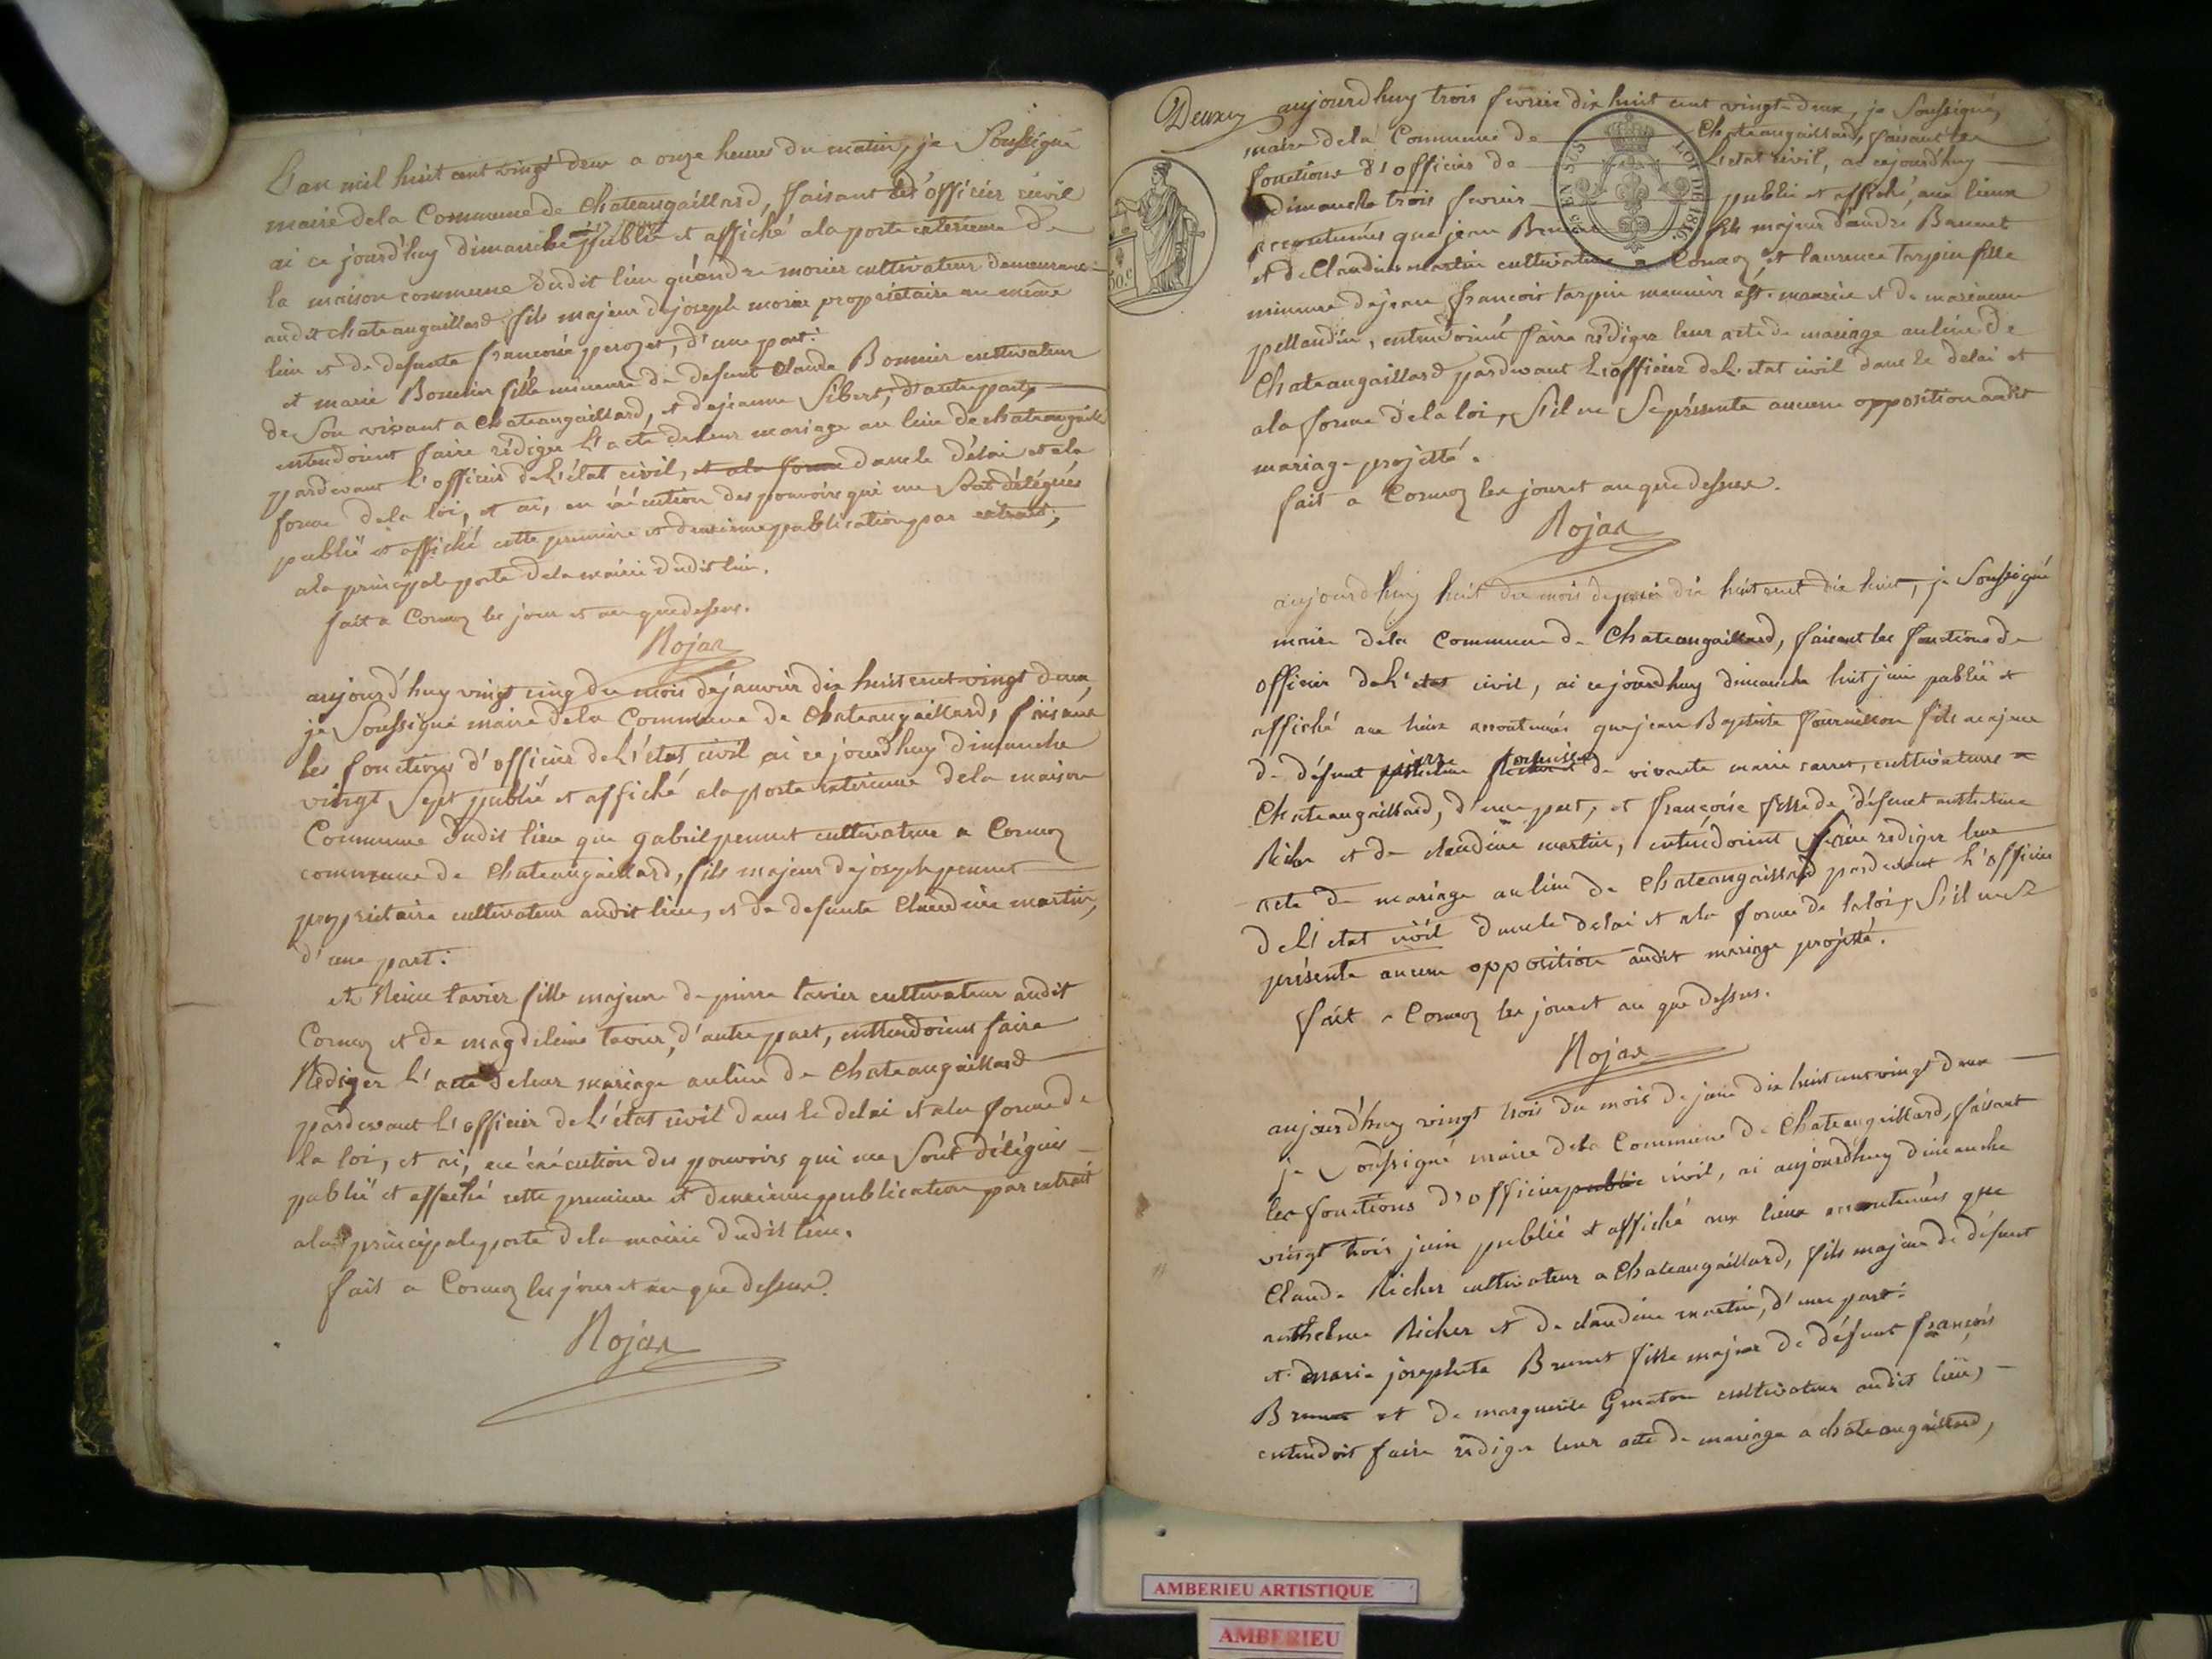 L'an mil huit cent vingt deux a onze heures du matin, je Soussigné
maire dela Commune de Chateaugaillard, faisant les d'officier civil
ai ce jourd'huy dimanche publié et affiché ala porte exterieure de
la maison commune dudit lieu qu'andre morier cultivateur demeurant
audit chateaugaillard fils majeur de joseph morier propriétaire au même
lieu et de defunte francoise perozet, d'une part:
et marie Bonnier fille mineure de defunt Claude Bonnier cultivateur
de Son vivant a Chateaugaillard, et dejeanne Sibert, d'autre part,
entendoient faire rédiger l'acte deleur mariage au lieu de chateaugaill
pardevant l'officier del'état civil, et ala forme dans le délai et ala
forme dela loi, et ai, en éxécution des pouvoirs qui me Sont délégués
publié et affiché cette premiere et deuxieme publication par extrait,
ala principale porte dela mairie dudit lieu.
fait a Cormoz les jour et an que dessus.
Rojat
aujourd'huy vingt cinq du mois dejanvier dix huit cent vingt deux
je Soussigné maire dela Commune de Chateaugaillard, faisant
les fonctions d'officier del'état civil ai ce jourd'huy dimanche
vingt Sept publié et affiché ala porte exterieure dela maison
Commune dudit lieu que gabriel pennet cultivateur a Cormoz
commune de Chateaugaillard, fils majeur dejoseph pennet
propriétaire cultivateur audit lieu, et de defunte Claudine martin,
d'une part:
et Reine tavier fille majeure de pierre tavier cultivateur audit
Cormoz et de magdeleine tavier, d'autre part, entendoient faire
Rédiger l'acte deleur mariage aulieu de Chateaugaillard
pardevant l'officier de l'état civil dans le delai et ala forme de
la loi, et ai, en éxécution des pouvoirs qui me Sont délégués
publié et affiché cette premiere et deuxieme publication par extrait
ala principale porte dela mairie dudit lieu.
fait a Cormoz les jour et an que dessus.
Rojat
Deux
aujourdhuy trois fevrier dix huit cent vingt deux, je Soussigné,
maire dela Commune de Chateaugaillard, faisant les
fonctions d'officier de L'etat civil, ai cejourd'huy
dimanche trois fevrier publié et affiché, aux lieux
accoutumés que jean Brunet fils majeur d'andré Brunet
et de Claudine martin cultivateur a Cormoz et laurence tarpin fille
mineure dejean francois tarpin meunier et de marianne
pellaudin, entendoient faire rédiger leur acte de mariage aulieu de
Chateaugaillard pardevant L'officier del'etat civil dans le delai et
ala forme dela loi, S'il ne Se présente aucune opposition audit
mariage projetté.
fait a Cormoz les jour et an que dessus.
Rojat
aujourd'huy huit du mois de juin dix huit cent dix huit, je Soussigné
maire dela Commune de Chateaugaillard, faisant les fonctions de
officier del'etat civil, ai cejourdhuy dimanche huit juin publié et
affiché aux lieux accoutumés que jean Baptiste fournisson fils majeur
de défunt pierre fournisson de vivante marie carret, cultivateurs a
Chateaugaillard, d'une part, et françoise fille de défunt anthelme
Richer et de claudine martin, entendoient faire rediger leur
acte de mariage aulieu de Chateaugaillard pardevant l'officier
del'etat civil dans le delai et ala forme de la loi, S'il ne Se
présente aucune opposition audit mariage projetté.
fait a Cormoz les jour et an que dessus.
Rojat
aujourd'huy vingt trois du mois de juin dix huit cent vingt deux
je Soussigné maire dela Commune de Chateaugaillard, faisant
les fonctions d'officier public civil, ai aujourdhuy dimanche
vingt trois juin publié et affiché aux lieux accoutumés que
Claude Richer cultivateur a Chateaugaillard, fils majeur de défunt
anthelme Richer et de claudine martin, d'une part:
et marie josephete Brunet fille majeur de défunt françois
Brunet et de marguerite Graton cultivateur audit lieu,
entendoit faire rédiger leur acte de mariage a chateaugaillard,
50.c
EN SUS
LOI DE 1816
AMBERIEU ARTISTIQUE
AMBERIEU